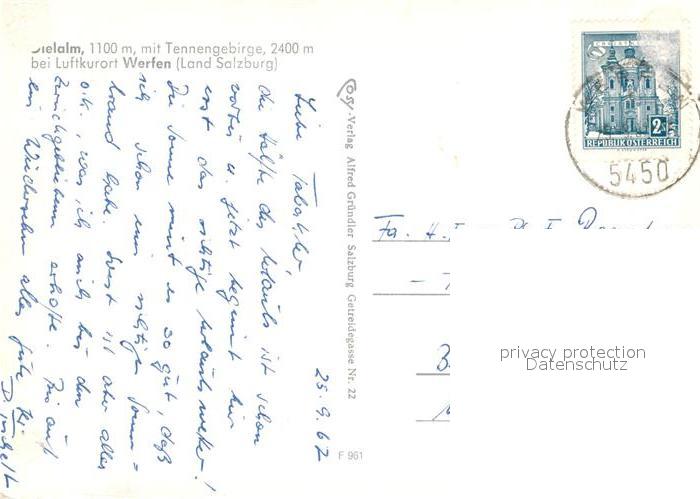 Dielalm, 1100 m, mit Tennengebirge, 2400 m
bei Luftkurort Werfen (Land Salzburg)
25.9.62
die Hälfte des Urlaubs ist schon
vorbei u. jetzt beginnt hier
erst das richtige Urlaubswetter!
Die Sonne meint es so gut, daß
ich schon einen richtigen Sonnen=
brand habe. Sonst ist aber alles
o.k., was ich auch bei den
Zurückgebliebenen erhoffe. Bis auf
ein Wiedersehen alles Gute
Cosy-Verlag Alfred Gründler Salzburg Getreidegasse Nr. 22
F 961
2 S
REPUBLIK ÖSTERREICH
5450
Fa. H.
privacy protection
Datenschutz